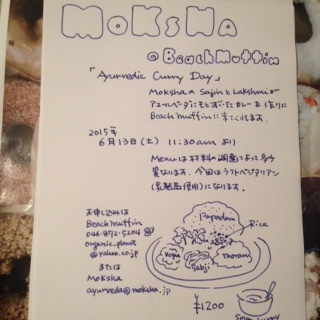 MOKSHA
@ Beach Muffin
「Ayurvedic Curry Day」
MokshaのSajinとLakshmiが
アユルベーダにもとずいたカレーを作りに
Beach muffinに来てくれます。
2015年
6月13日(土) 11:30amより
Menuは材料の調達によって多少
異なります。今回はラクトベジタリアン
(乳製品使用)になります。
お申し込みは
Beach muffin
046-872-5204
organic_planet
@yahoo.co.jp
または
Moksha
ayurveda@moksha.jp
Papadam
Rice
Veggie
Sabji
Thoran
¥1200
Soup Curry